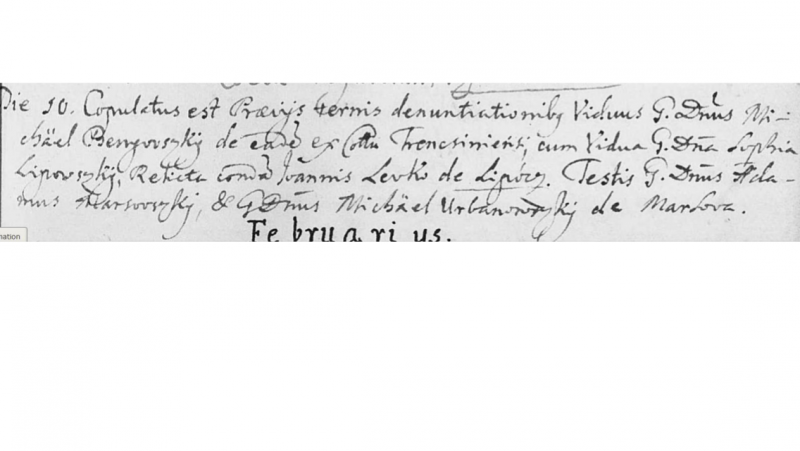 Die 10. Copulatus est Prævijs ternis denuntiationibq Viduus G. Dnûs Mi-
chäel Benyovszkij de eadê ex Cottu Trencsiniensi, cum Vidua G. Dña Sophia
Lipovszkij, Relicta condâ Joannis Levko de Lipócz. Testis G. Dnûs Ada-
mus Marsovszkij, & G Dnûs Michäel Urbanowszkij de Marsova.
Februarius.
mation